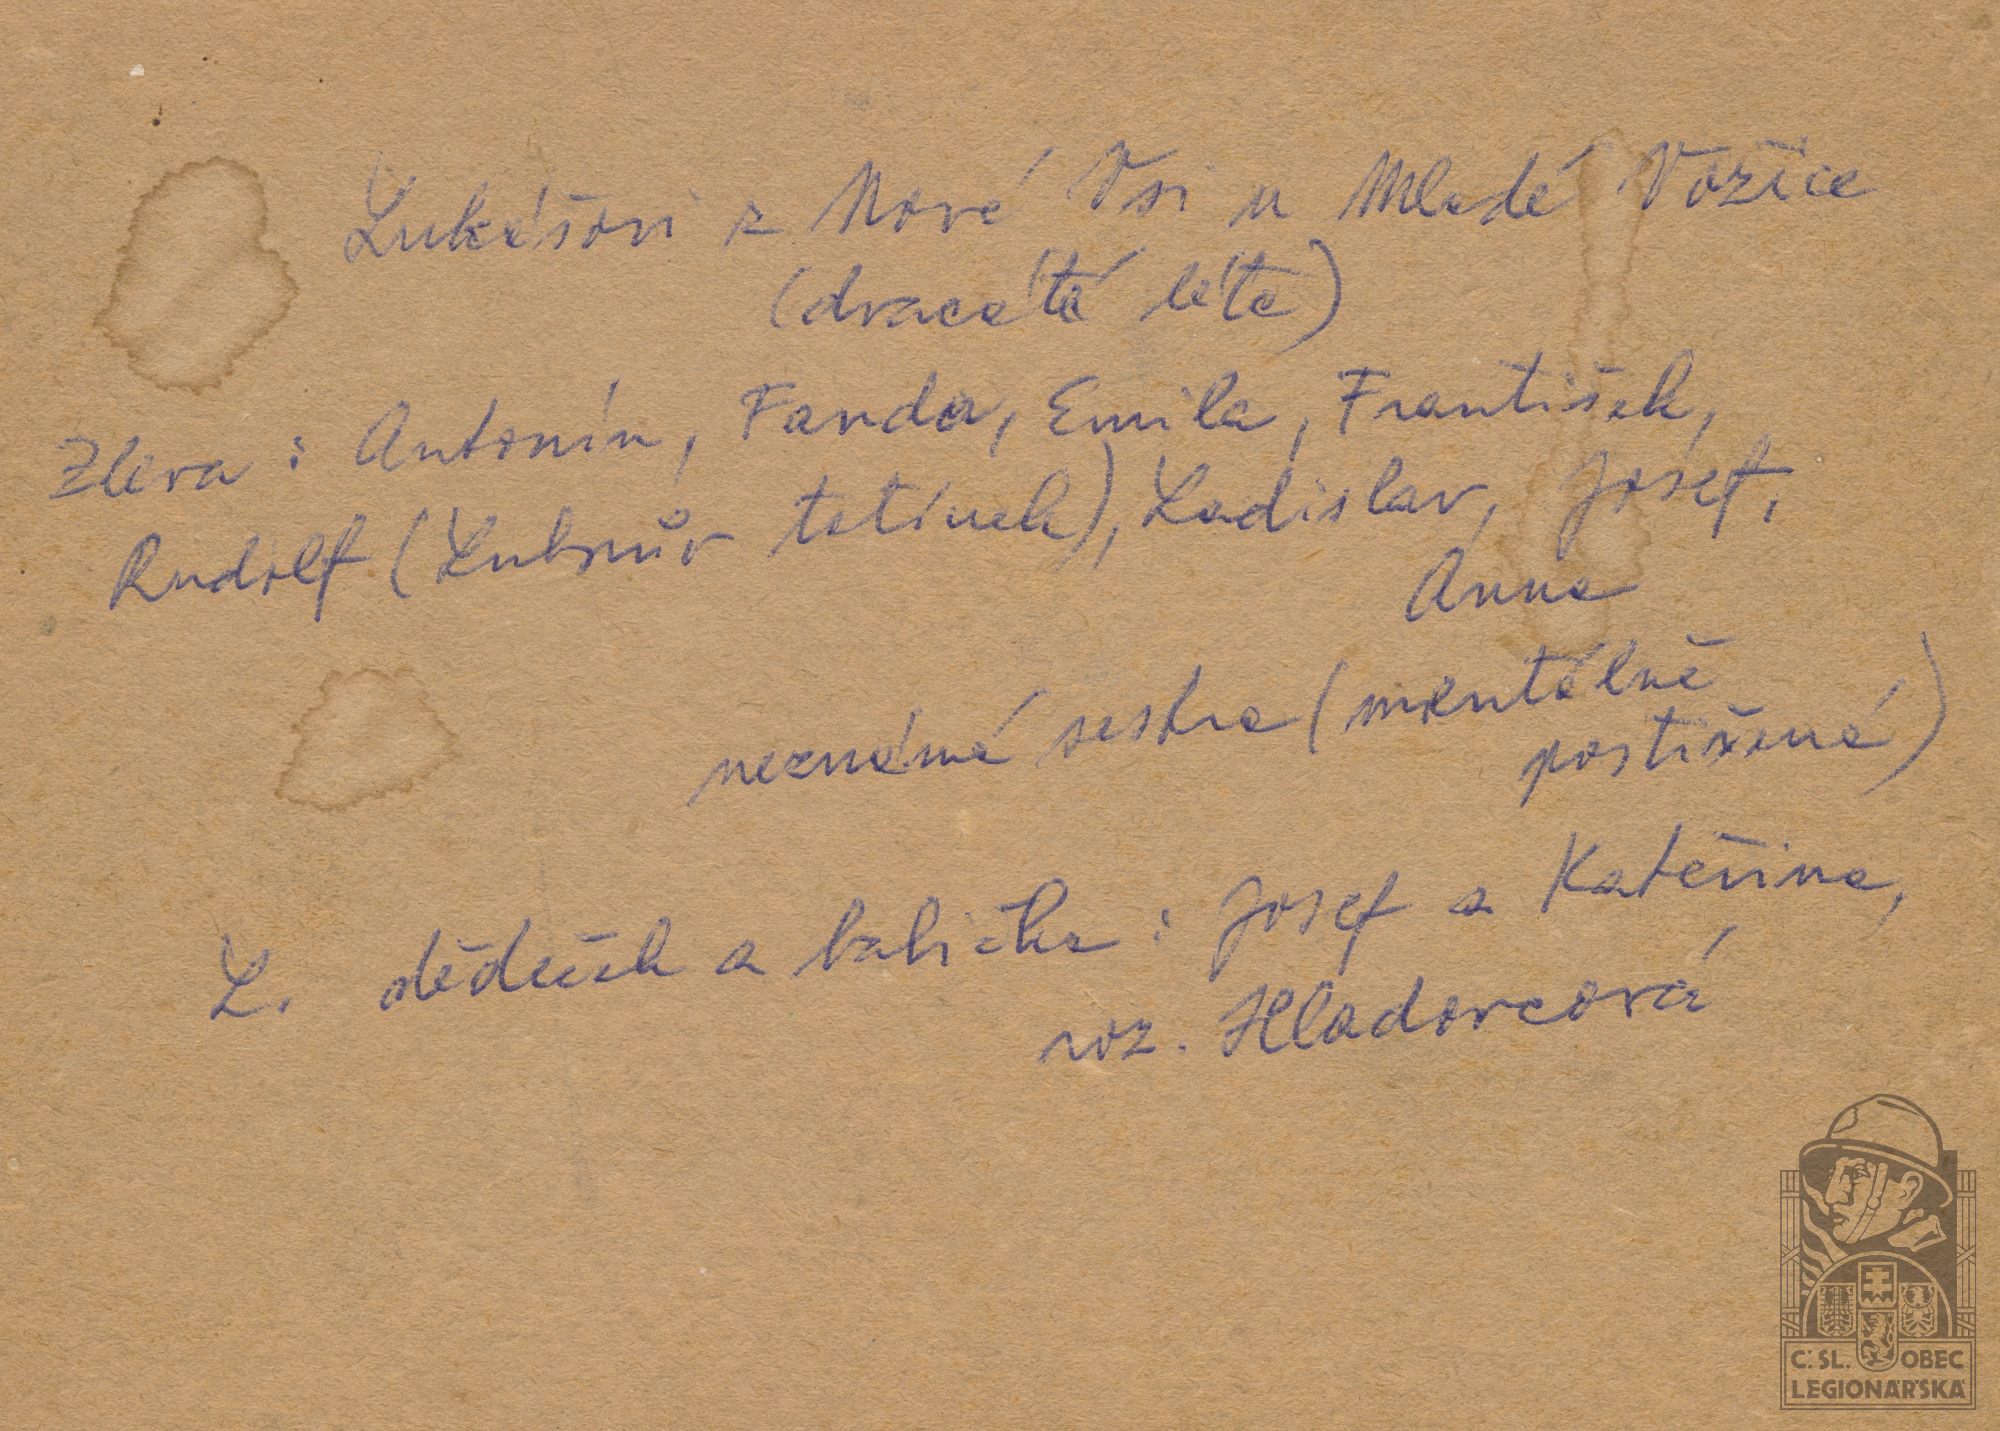 Lukášovi z Nové Vsi u Mladé Vožice
(dvacátá léta)
Zleva: Antonín, Fanda, Emila, František,
Rudolf (Lubošův tatínek), Ladislav, Josef,
Anna
neznámá sestra (mentálně
postižená)
L. dědeček a babička: Josef a Kateřina,
roz. Hladovcová
Č. SL. OBEC
LEGIONÁŘSKÁ